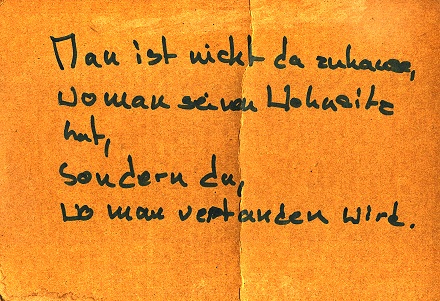 Man ist nicht da zuhause,
wo man seinen Wohnsitz
hat,
sondern da,
wo man verstanden wird.